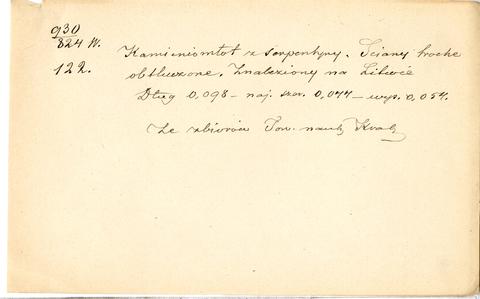 930
824 W.
122.
Kamieniomłot z serpentyny. Ściany trochę
obtłuczone. Znaleziony na Litwie
Dług 0,098 – naj. szer. 0,044 – wys. 0,054.
Ze zbiorów Tow. nauk Krak